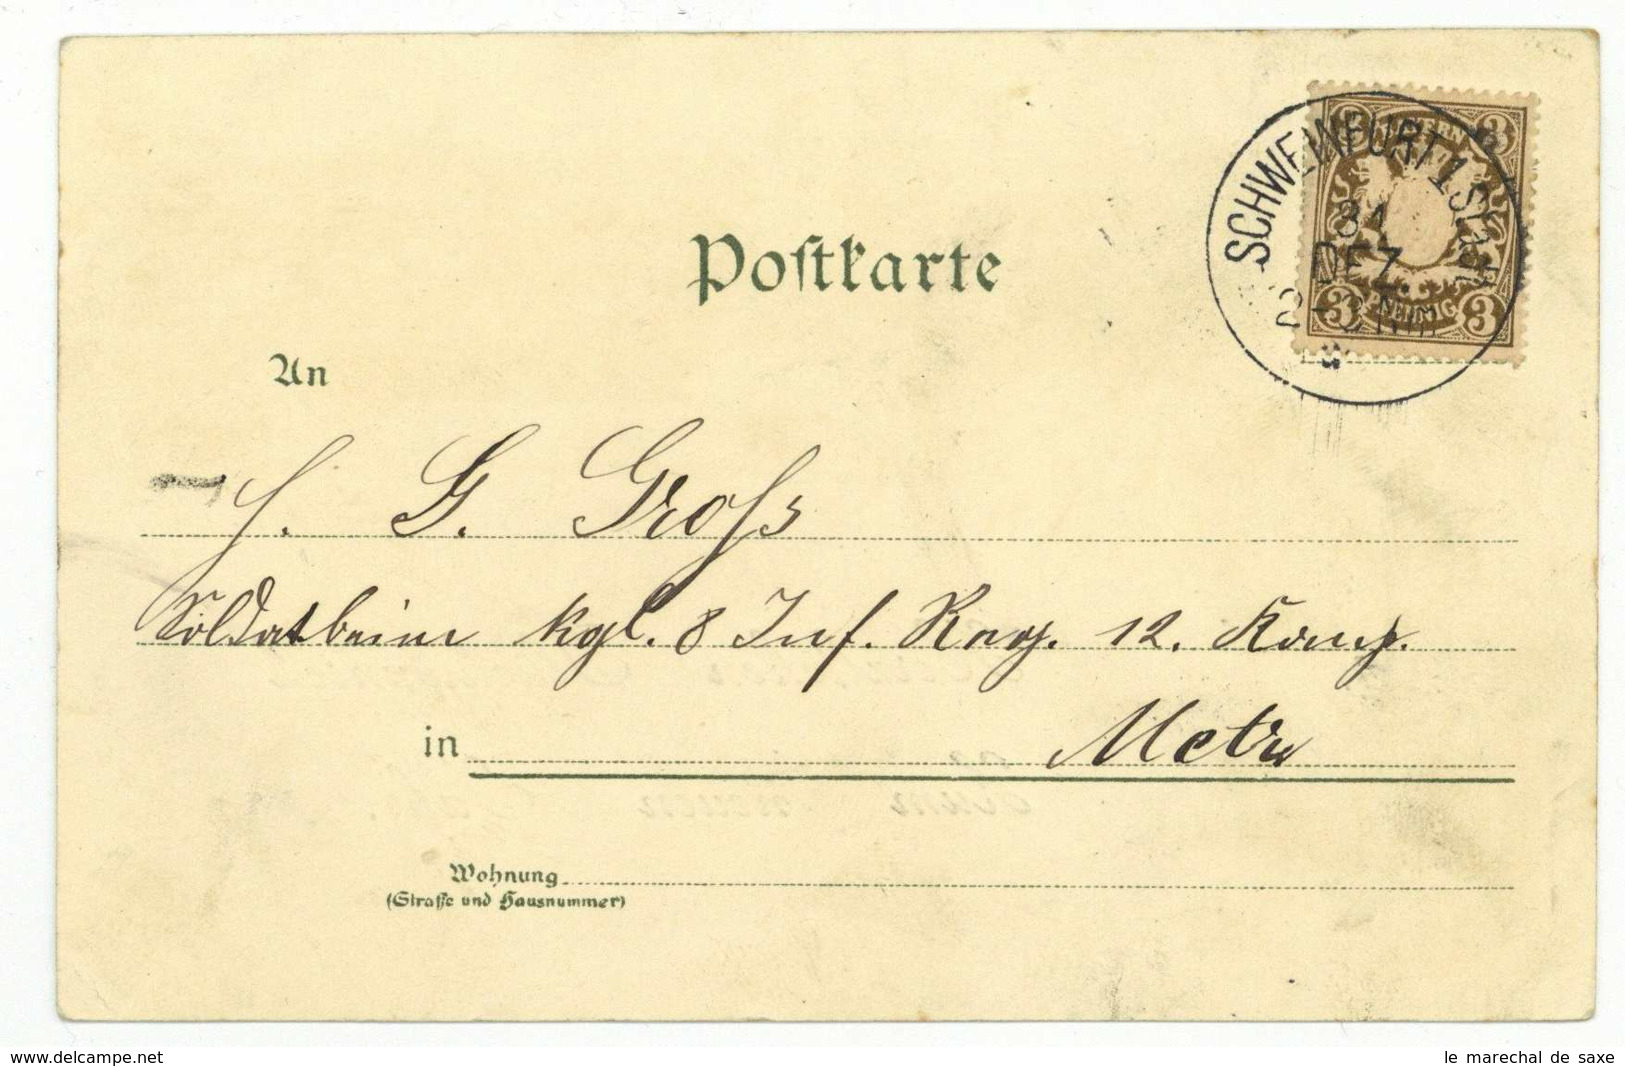 SCHWEINFURT 1 Stadt
31
DEZ.
BAYERN
3 PFENNIG 3
Postkarte
An
H. G. Groß
Soldat beim kgl. 8 Inf. Reg. 12. Komp.
in Metz
Wohnung
(Straße und Hausnummer)
www.delcampe.net
le marechal de saxe